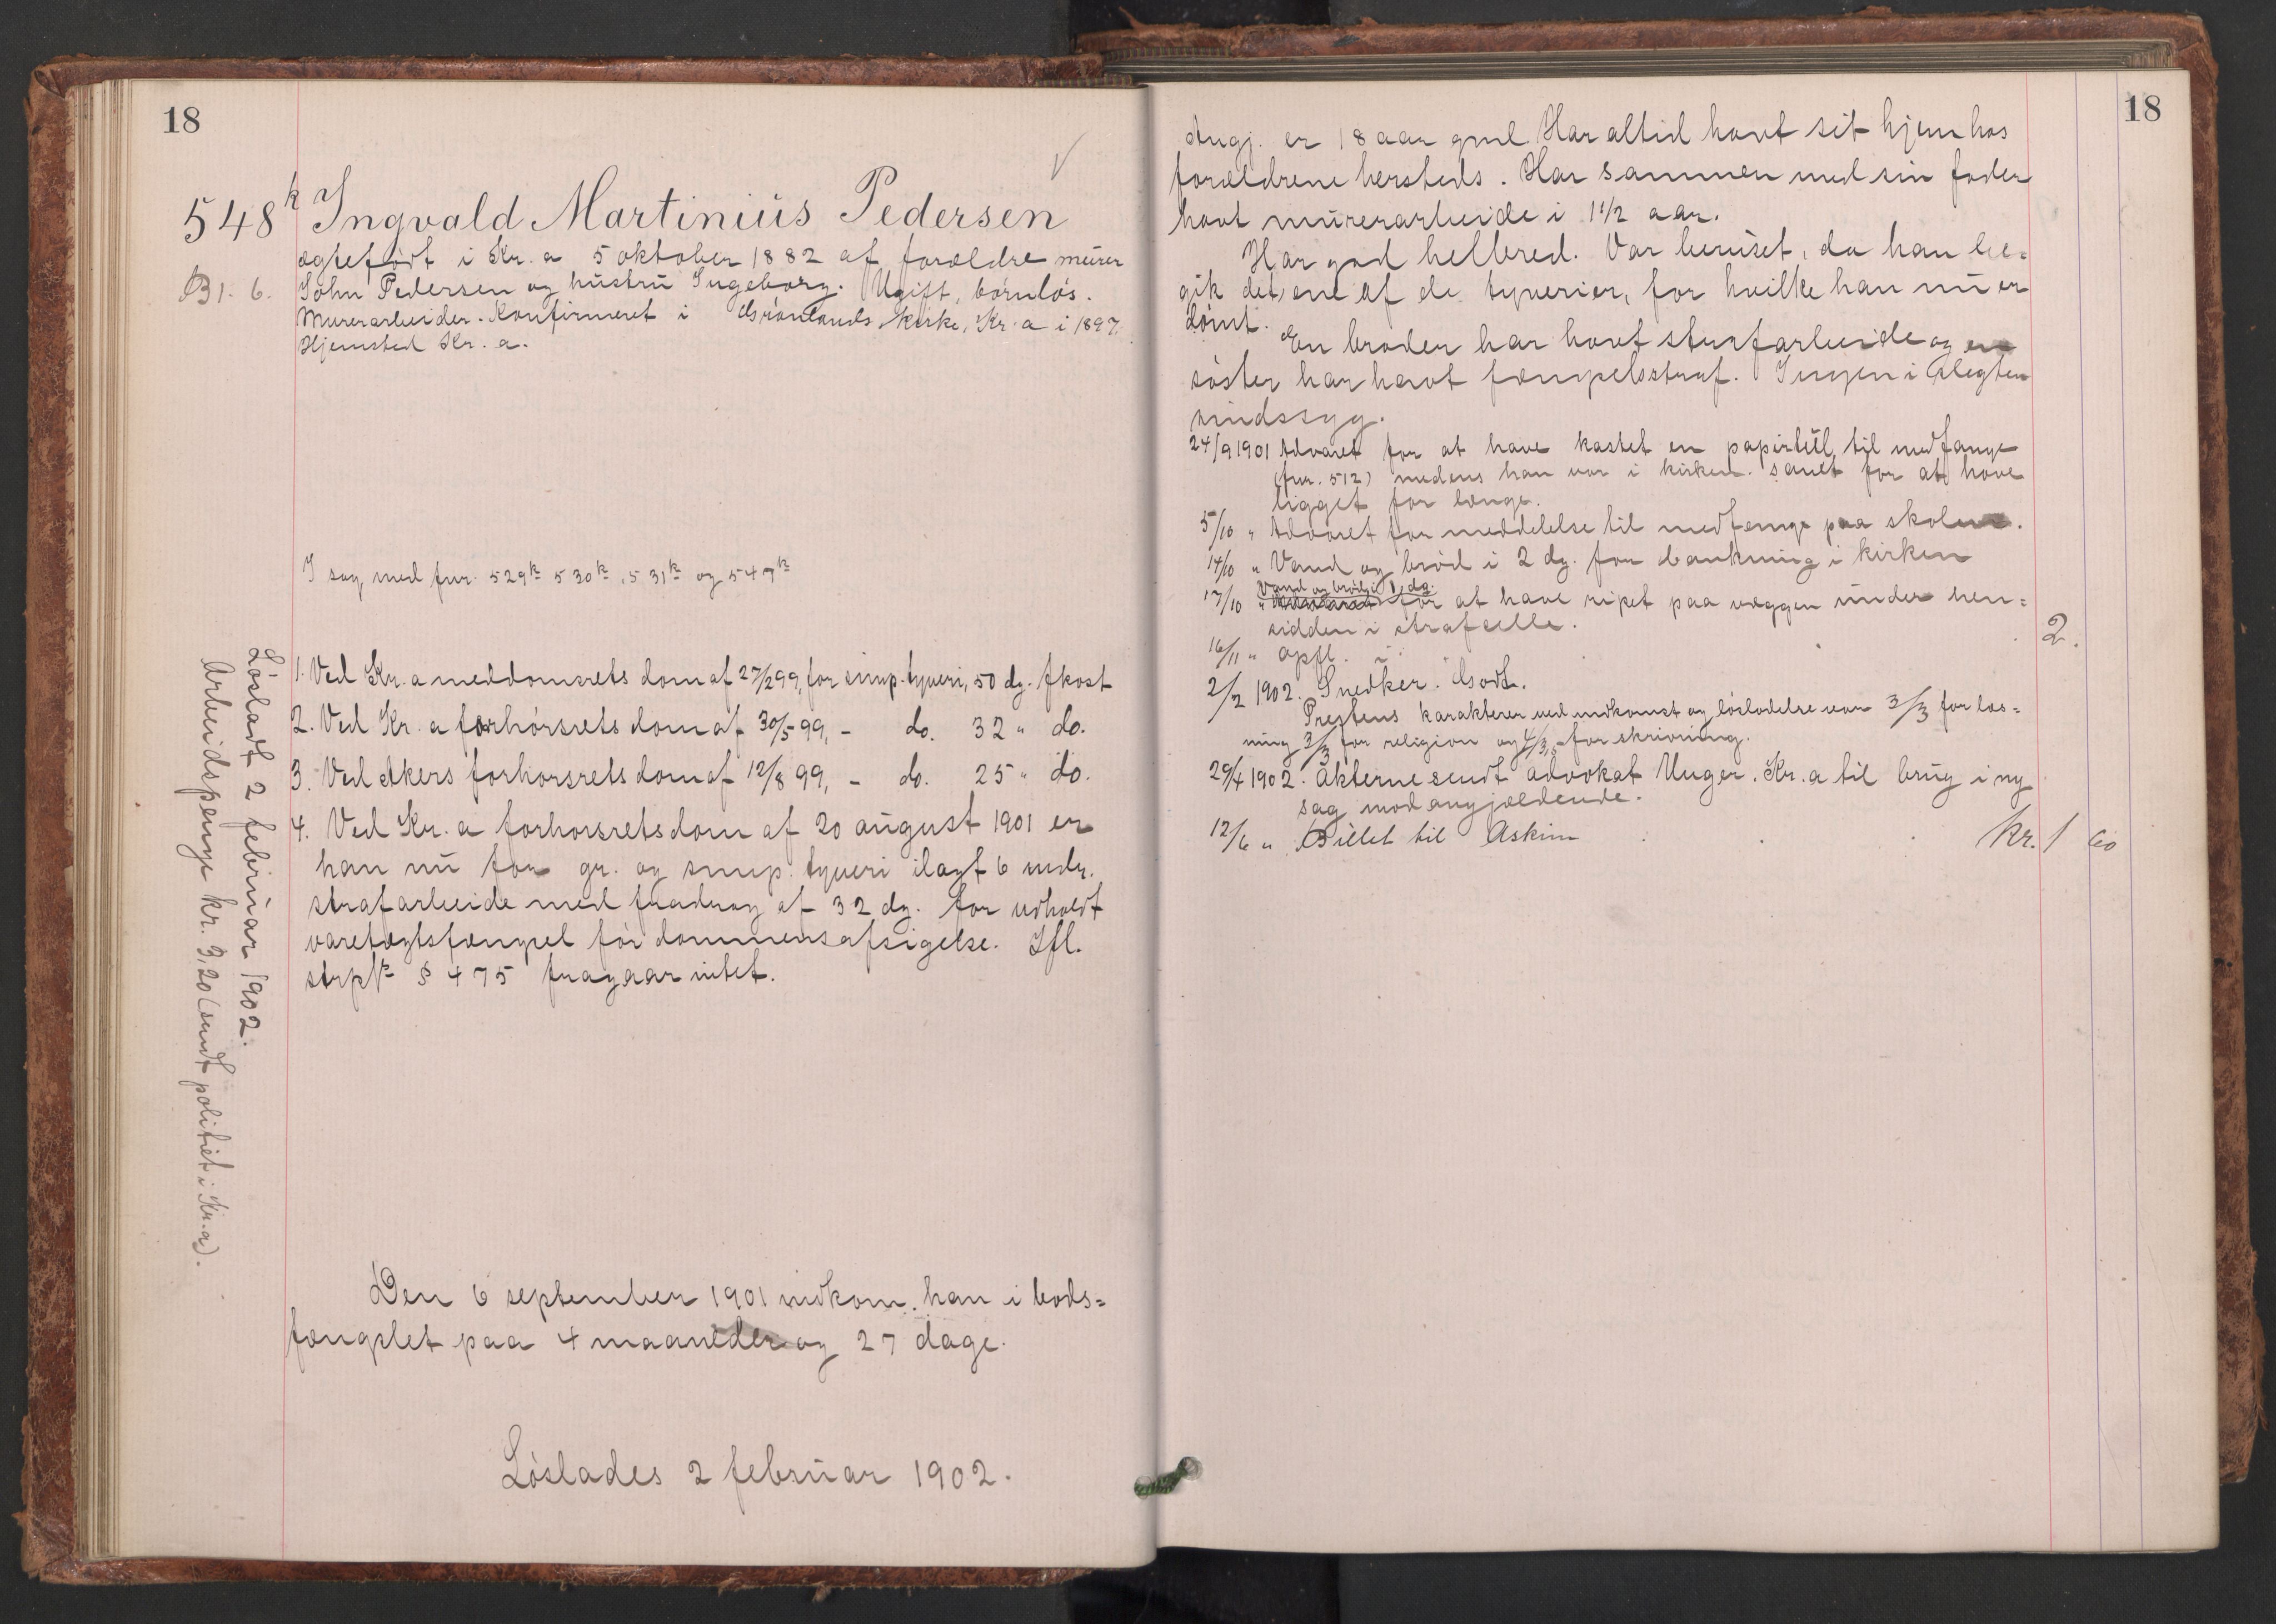 18
548k Ingvald Martinius Pedersen
ægtefødt i Kr.a 5 oktober 1882 af forældre murer
B1. 6. John Pedersen og hustru Ingeborg. Ugift, børnløs.
Murerarbeider. Konfirmeret i Grønlands kirke, Kr.a i 1897.
Hjemsted Kr.a.
I sag med fnr. 529k 530k, 531k og 547k
1. Ved Kr.a meddomsrets dom af 27/2 99, for simp. tyveri, 50 dg. fkost
2. Ved Kr.a forhørsrets dom af 30/5 99, - do. 32 " do.
3. Ved Akers forhørsrets dom af 12/8 99, - do. 25 " do.
4. Ved Kr.a forhørsrets dom af 20 august 1901 er
han nu for gr. og simp. tyveri ilagt 6 mdr.
strafarbeide med fradrag af 32 dg. for udholdt
varetægtsfængsel før dommens afsigelse. Ifl.
strpl § 475 fragaar intet.
Den 6 september 1901 indkom han i bods=
fængslet paa 4 maaneder og 27 dage.
Løslades 2 februar 1902.
Løsladt 2 februar 1902.
Arbeidspenge kr. 3,20 (sendt politiet i Kr.a).
18
Angj. er 18 aar gml. Har altid havt sit hjem hos
forældrene hersteds. Har sammen med sin fader
havt murerarbeide i 1 1/2 aar.
Har god helbred. Var beruset, da han be=
gik det ene af de tyverier, for hvilke han nu er
dømt.
En broder har havt strafarbeide og en
søster har havt fængselsstraf. Ingen i slegten
sindssyg.
24/9 1901 Advaret for at have kastet en papirtut til medfange
(fnr. 512) medens han var i kirken. samt for at have
ligget for længe.
5/10 " Advaret for meddelelse til medfange paa skolen.
14/10 " Vand og brød i 2 dg. for bankning i kirken
Vand og brød i 1 dg.
17/10 " for at have ripet paa væggen under hen=
sidden i strafcelle.
16/11 " opfl. i 2.
2/2 1902. Snedker. Godt.
Prestens karakterer ved indkomst og løsladelse var 3/3 for læs=
ning 3/3 for religion og 4/3,5 for skrivning.
29/4 1902. Akterne sendt advokat Unger, Kr.a til brug i ny
sag mod angjældende.
12/6 " Billet til Askim kr. 1 60